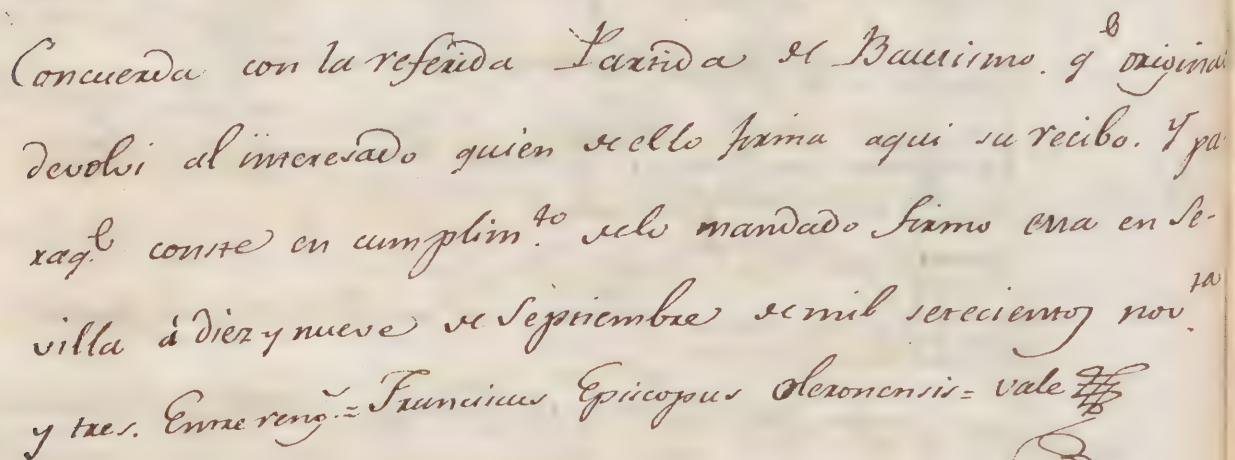 Concuerda con la referida Partida de Bautismo. qe original
devolvi al interesado quien de ello firma aqui su recibo. Y pa
raqe conste en cumplimto delo mandado firmo esta en Se-
villa á diez y nueve de Septiembre de mil setecientos novta
y tres. Entre reng.s = Franciscus Episcopus Oleronensis = vale